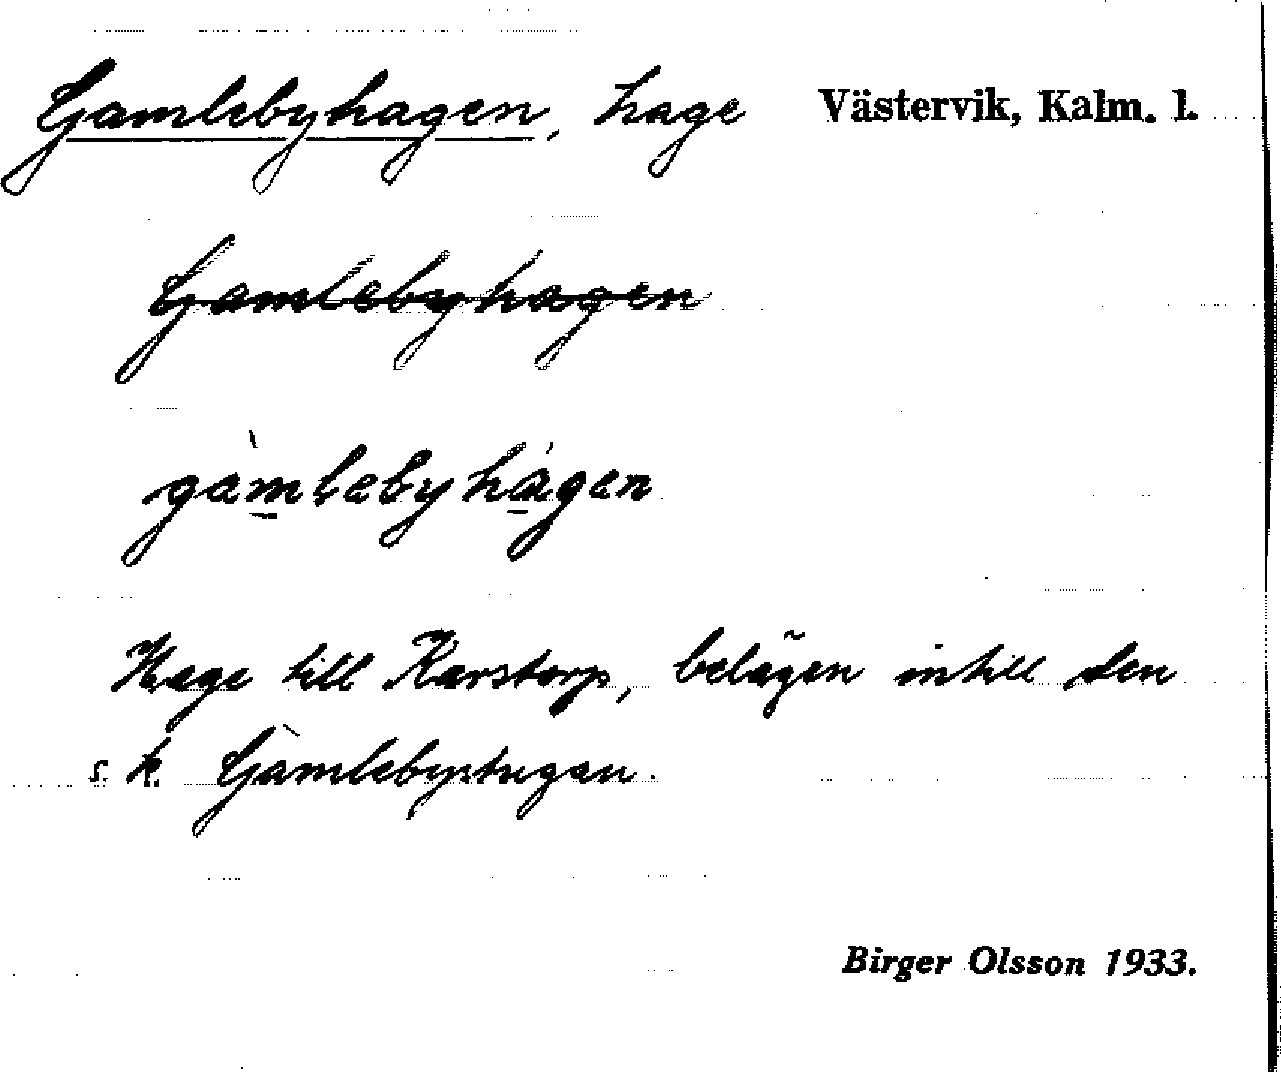 Gamlebyhagen, hage Västervik, Kalm. l.
Gamlebyhagen
gàmlebyhágen
Hage till Karstorp, belägen intill den
s. k. Gamlebystugan.
Birger Olsson 1933.